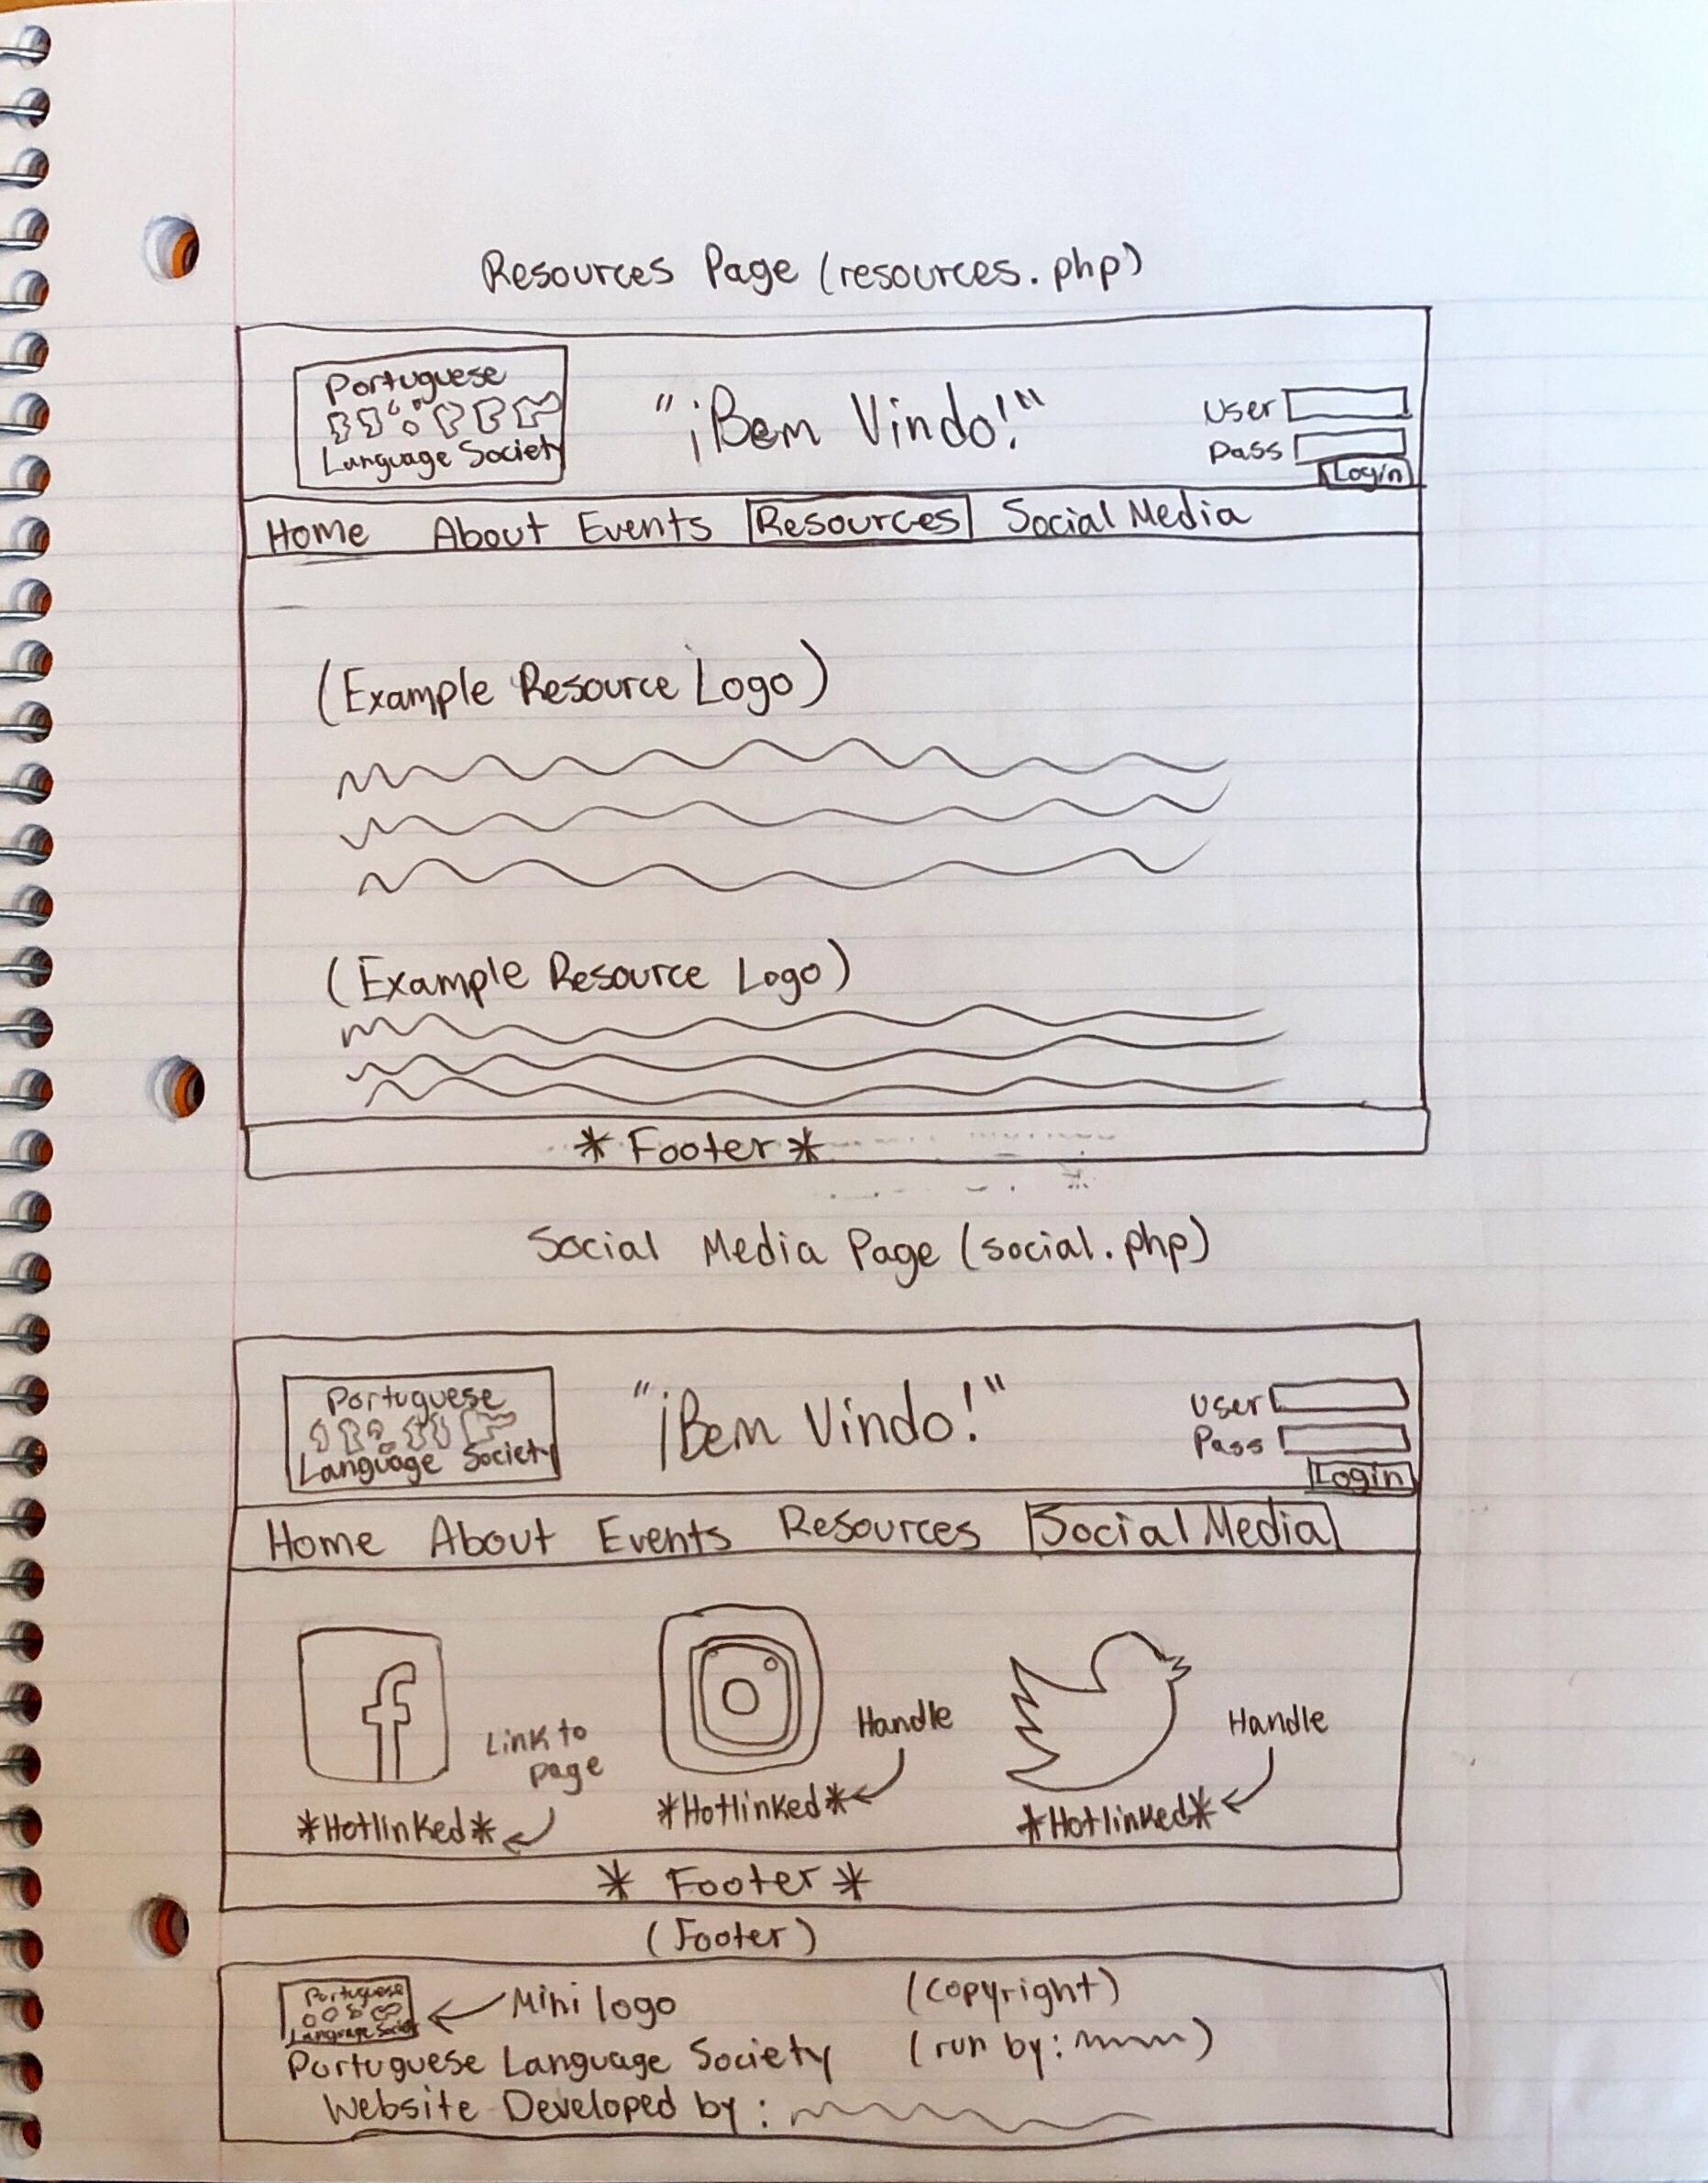 Resources Page (resources.php)
Portuguese
Language Society
"¡Bem Vindo!"
User
Pass
Login
Home About Events Resources Social Media
(Example Resource Logo)
(Example Resource Logo)
* Footer *
Social Media Page (social.php)
Portuguese
Language Society
"¡Bem Vindo!"
User
Pass
Login
Home About Events Resources Social Media
f
Link to
page
*Hotlinked*
Handle
*Hotlinked*
Handle
*Hotlinked*
* Footer *
(Footer)
Portuguese
Language Society
Mini logo
(copyright)
Portuguese Language Society
(run by: )
Website Developed by: